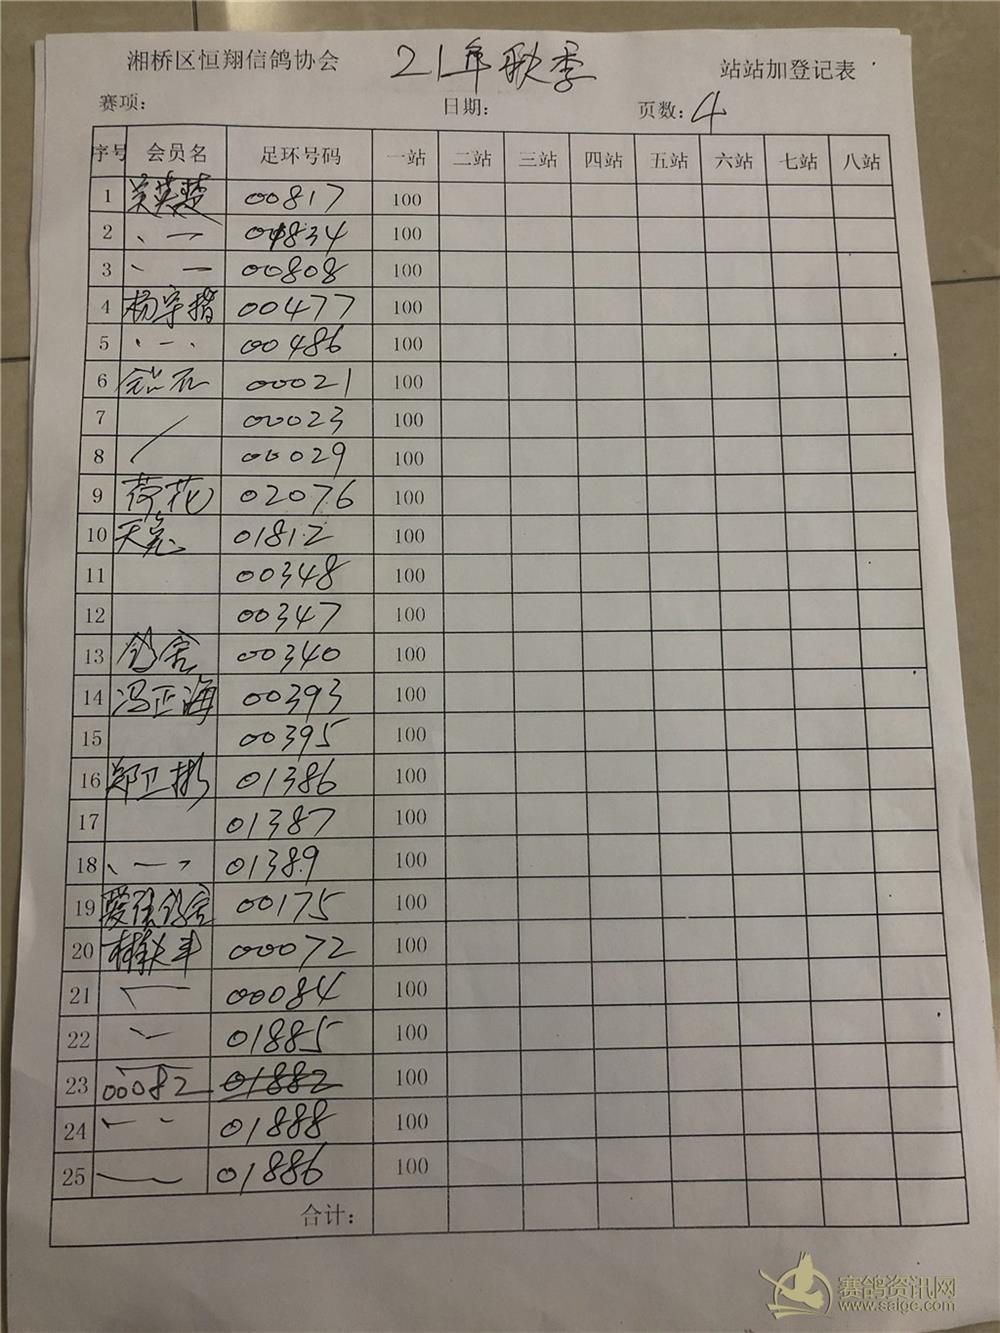 湘桥区恒翔信鸽协会 21年秋季 站站加登记表
赛项: 日期: 页数: 4
序号 会员名 足环号码 一站 二站 三站 四站 五站 六站 七站 八站
1 吴英楚 00817 100
2 、一 00834 100
3 、一 00808 100
4 杨宇楷 00477 100
5 、一、 00486 100
6 00021 100
7 00023 100
8 00029 100
9 荷花 02076 100
10 01812 100
11 00348 100
12 00347 100
13 鸽舍 00340 100
14 冯正海 00393 100
15 00395 100
16 郑卫彬 01386 100
17 01387 100
18 、一、 01389 100
19 鸽舍 00175 100
20 00072 100
21 00084 100
22 01885 100
23 00082 01882 100
24 01888 100
25 01886 100
合计:
赛鸽资讯网
www.saige.com